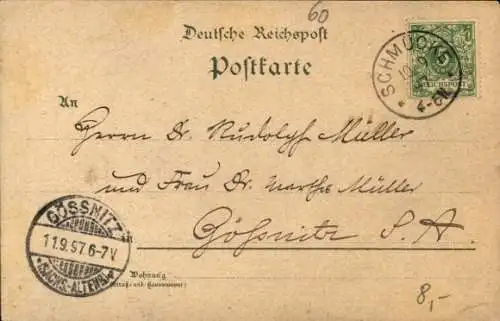 60
Deutsche Reichspost
Postkarte
SCHMÜCKE
4-6N
REICHSPOST
An
Herrn Dr. Rudolph Müller
und Frau Dr. Martha Müller
Gößnitz S. A.
GÖSSNITZ
11.9.97.6-7V
(SACHS.-ALTENB.)
in
Wohnung
(Straße und Hausnummer)
8,-